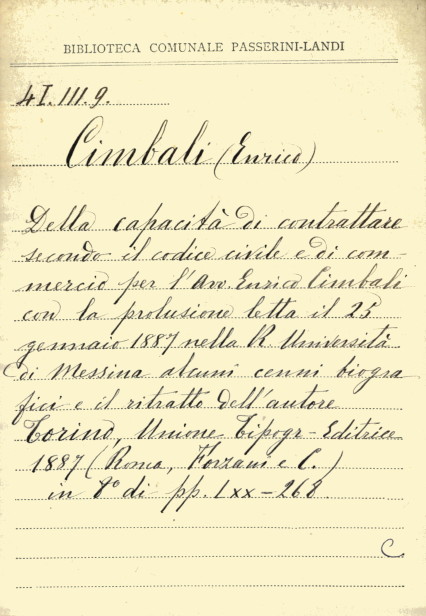 BIBLIOTECA COMUNALE PASSERINI-LANDI
4I.III.9.
Cimbali (Enrico)
Della capacità di contrattare
secondo il codice civile e di com-
mercio per l'Avv. Enrico Cimbali
con la prolusione letta il 25
gennaio 1887 nella R. Università
di Messina alcuni cenni biogra
fici e il ritratto dell'autore
Torino, Unione Tipogr-Editrice
1887 (Roma, Forzani e C.)
in 8° di pp. Lxx-268.
C